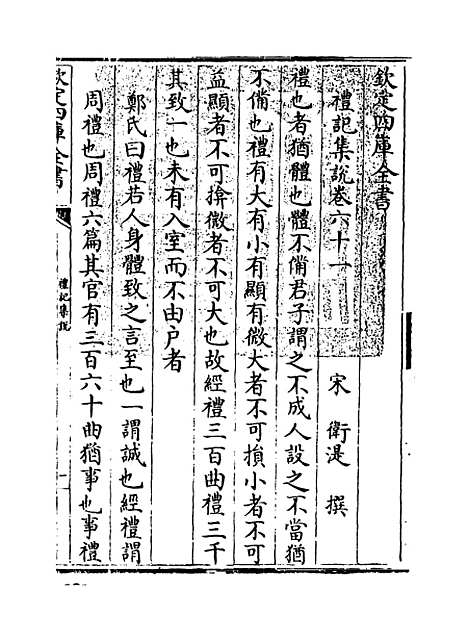 欽定四庫全書
禮記集說卷六十一
宋 衛湜 撰
禮也者猶體也體不備君子謂之不成人設之不當猶
不備也禮有大有小有顯有微大者不可損小者不可
益顯者不可揜微者不可大也故經禮三百曲禮三千
其致一也未有入室而不由户者
鄭氏曰禮若人身體致之言至也一謂誠也經禮謂
周禮也周禮六篇其官有三百六十曲猶事也事禮
欽定四庫全書
禮記集說
一